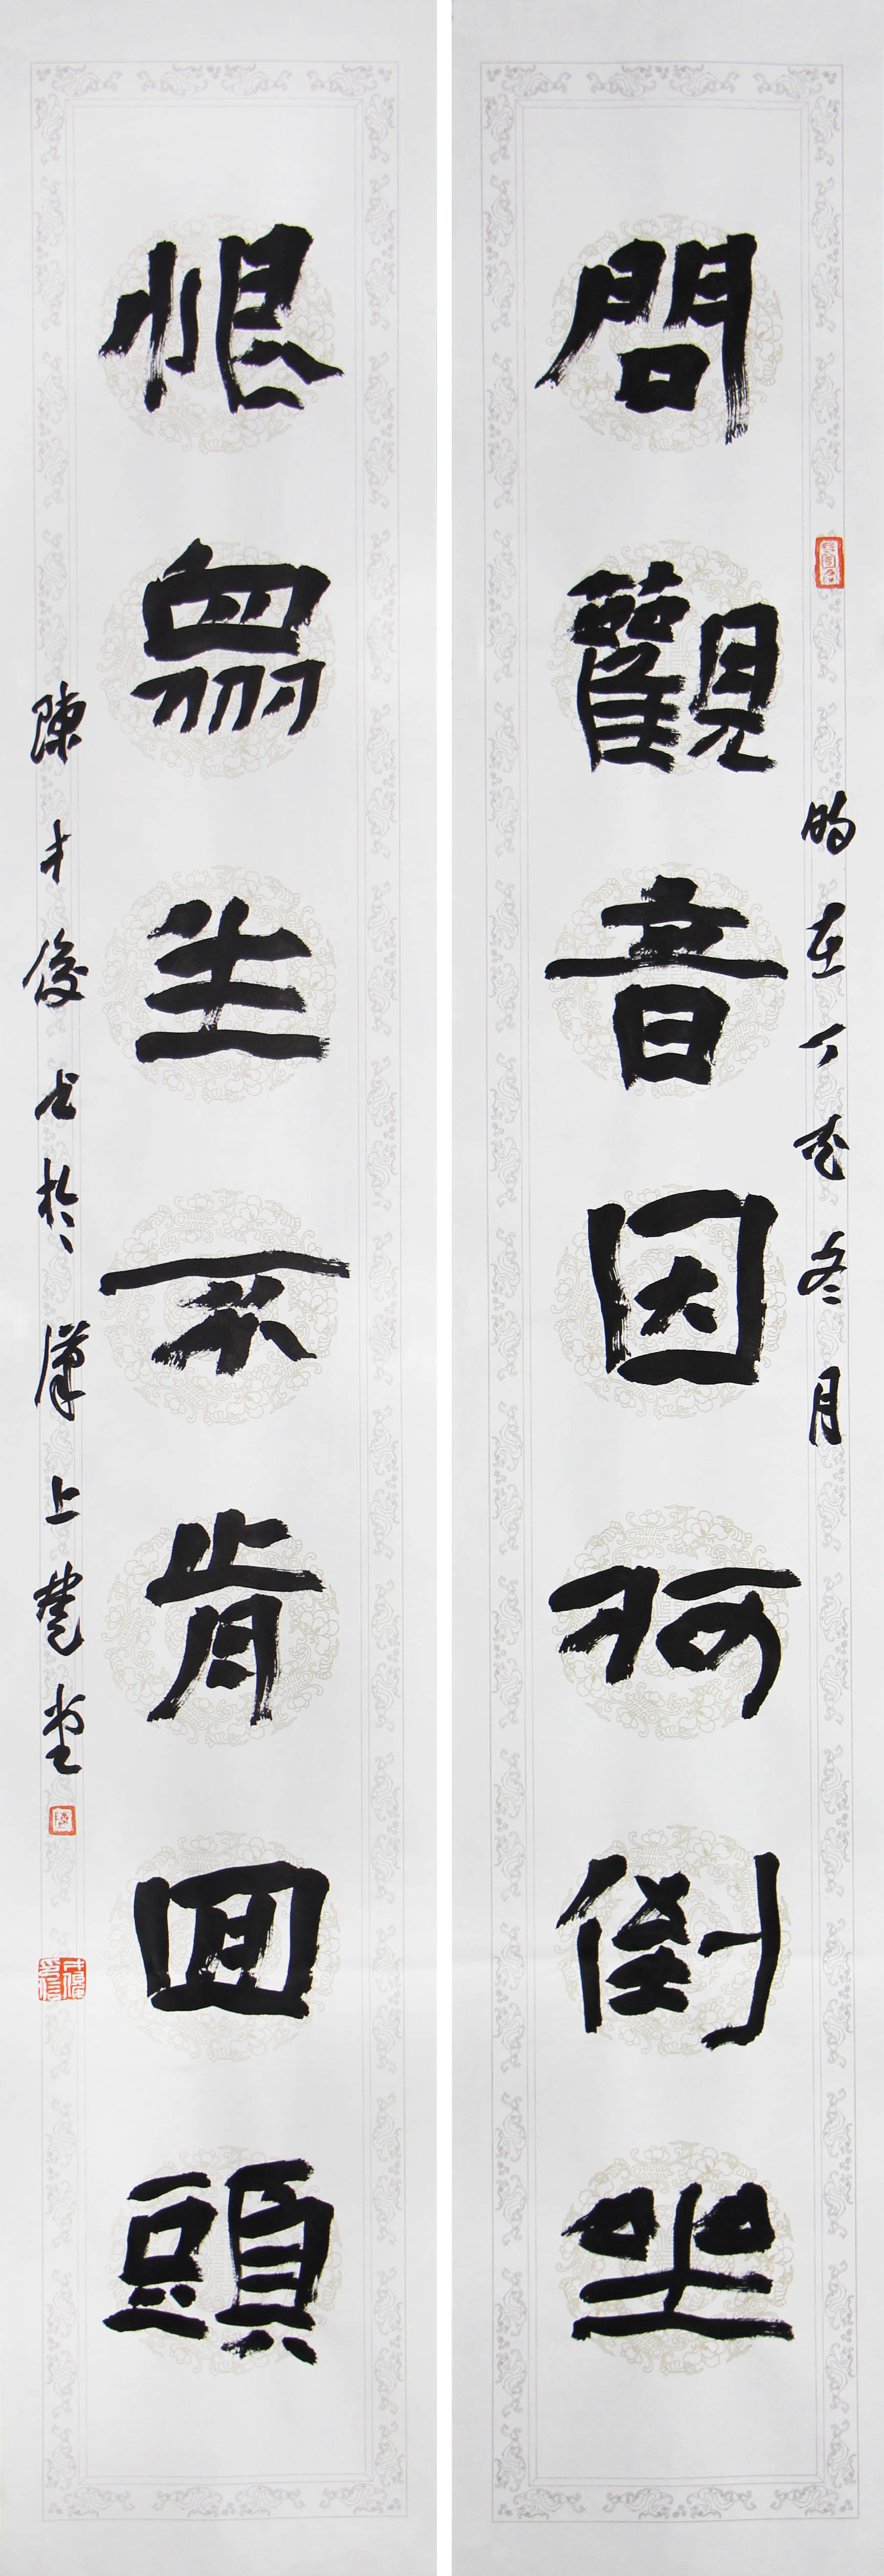 問觀音因何倒坐
時在丁酉冬月
恨眾生不肯回頭
陳才俊書於漢上蘭堂